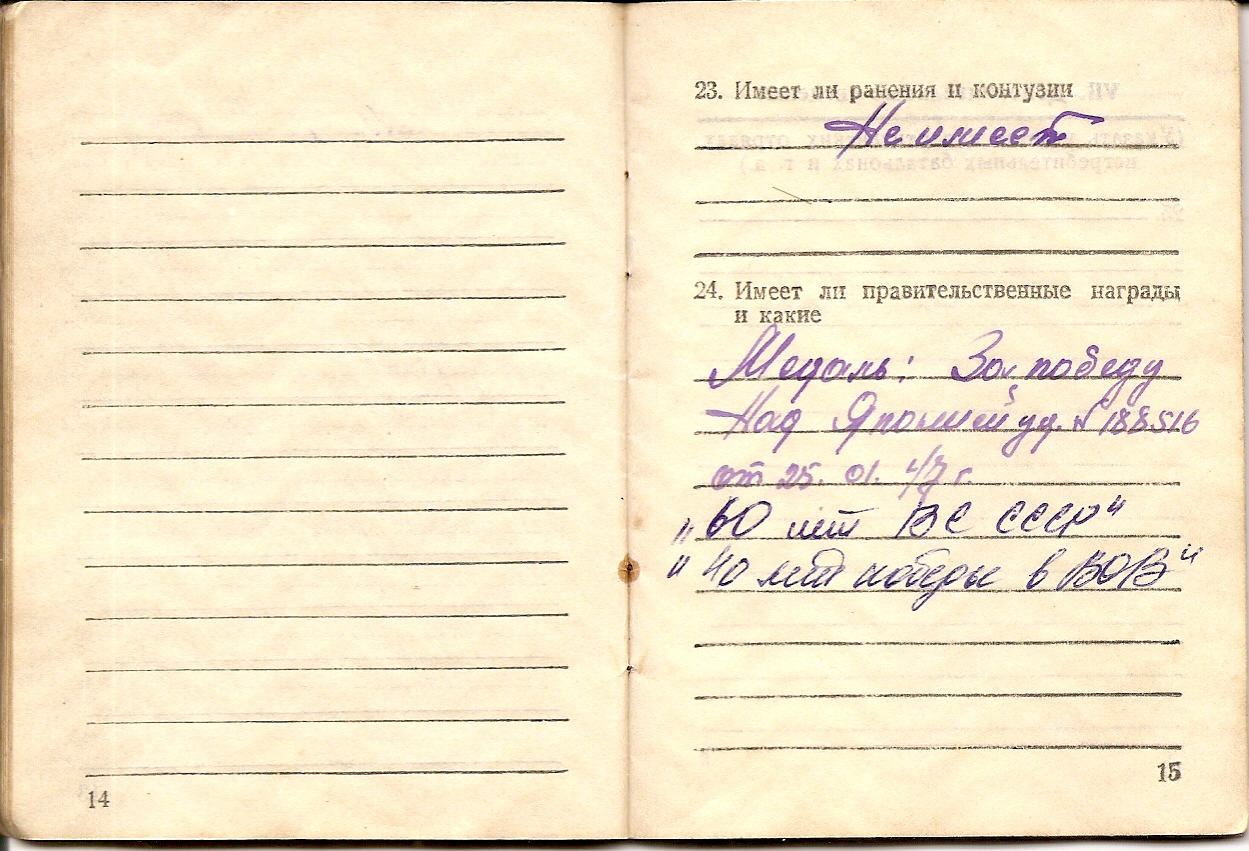 23. Имеет ли ранения и контузии
Не имеет
24. Имеет ли правительственные награды
и какие
Медаль: За победу
Над Японией уд. № 188516
от 25. 01. 47 г.
"60 лет ВС СССР"
"40 лет победы в ВОВ"
14
15